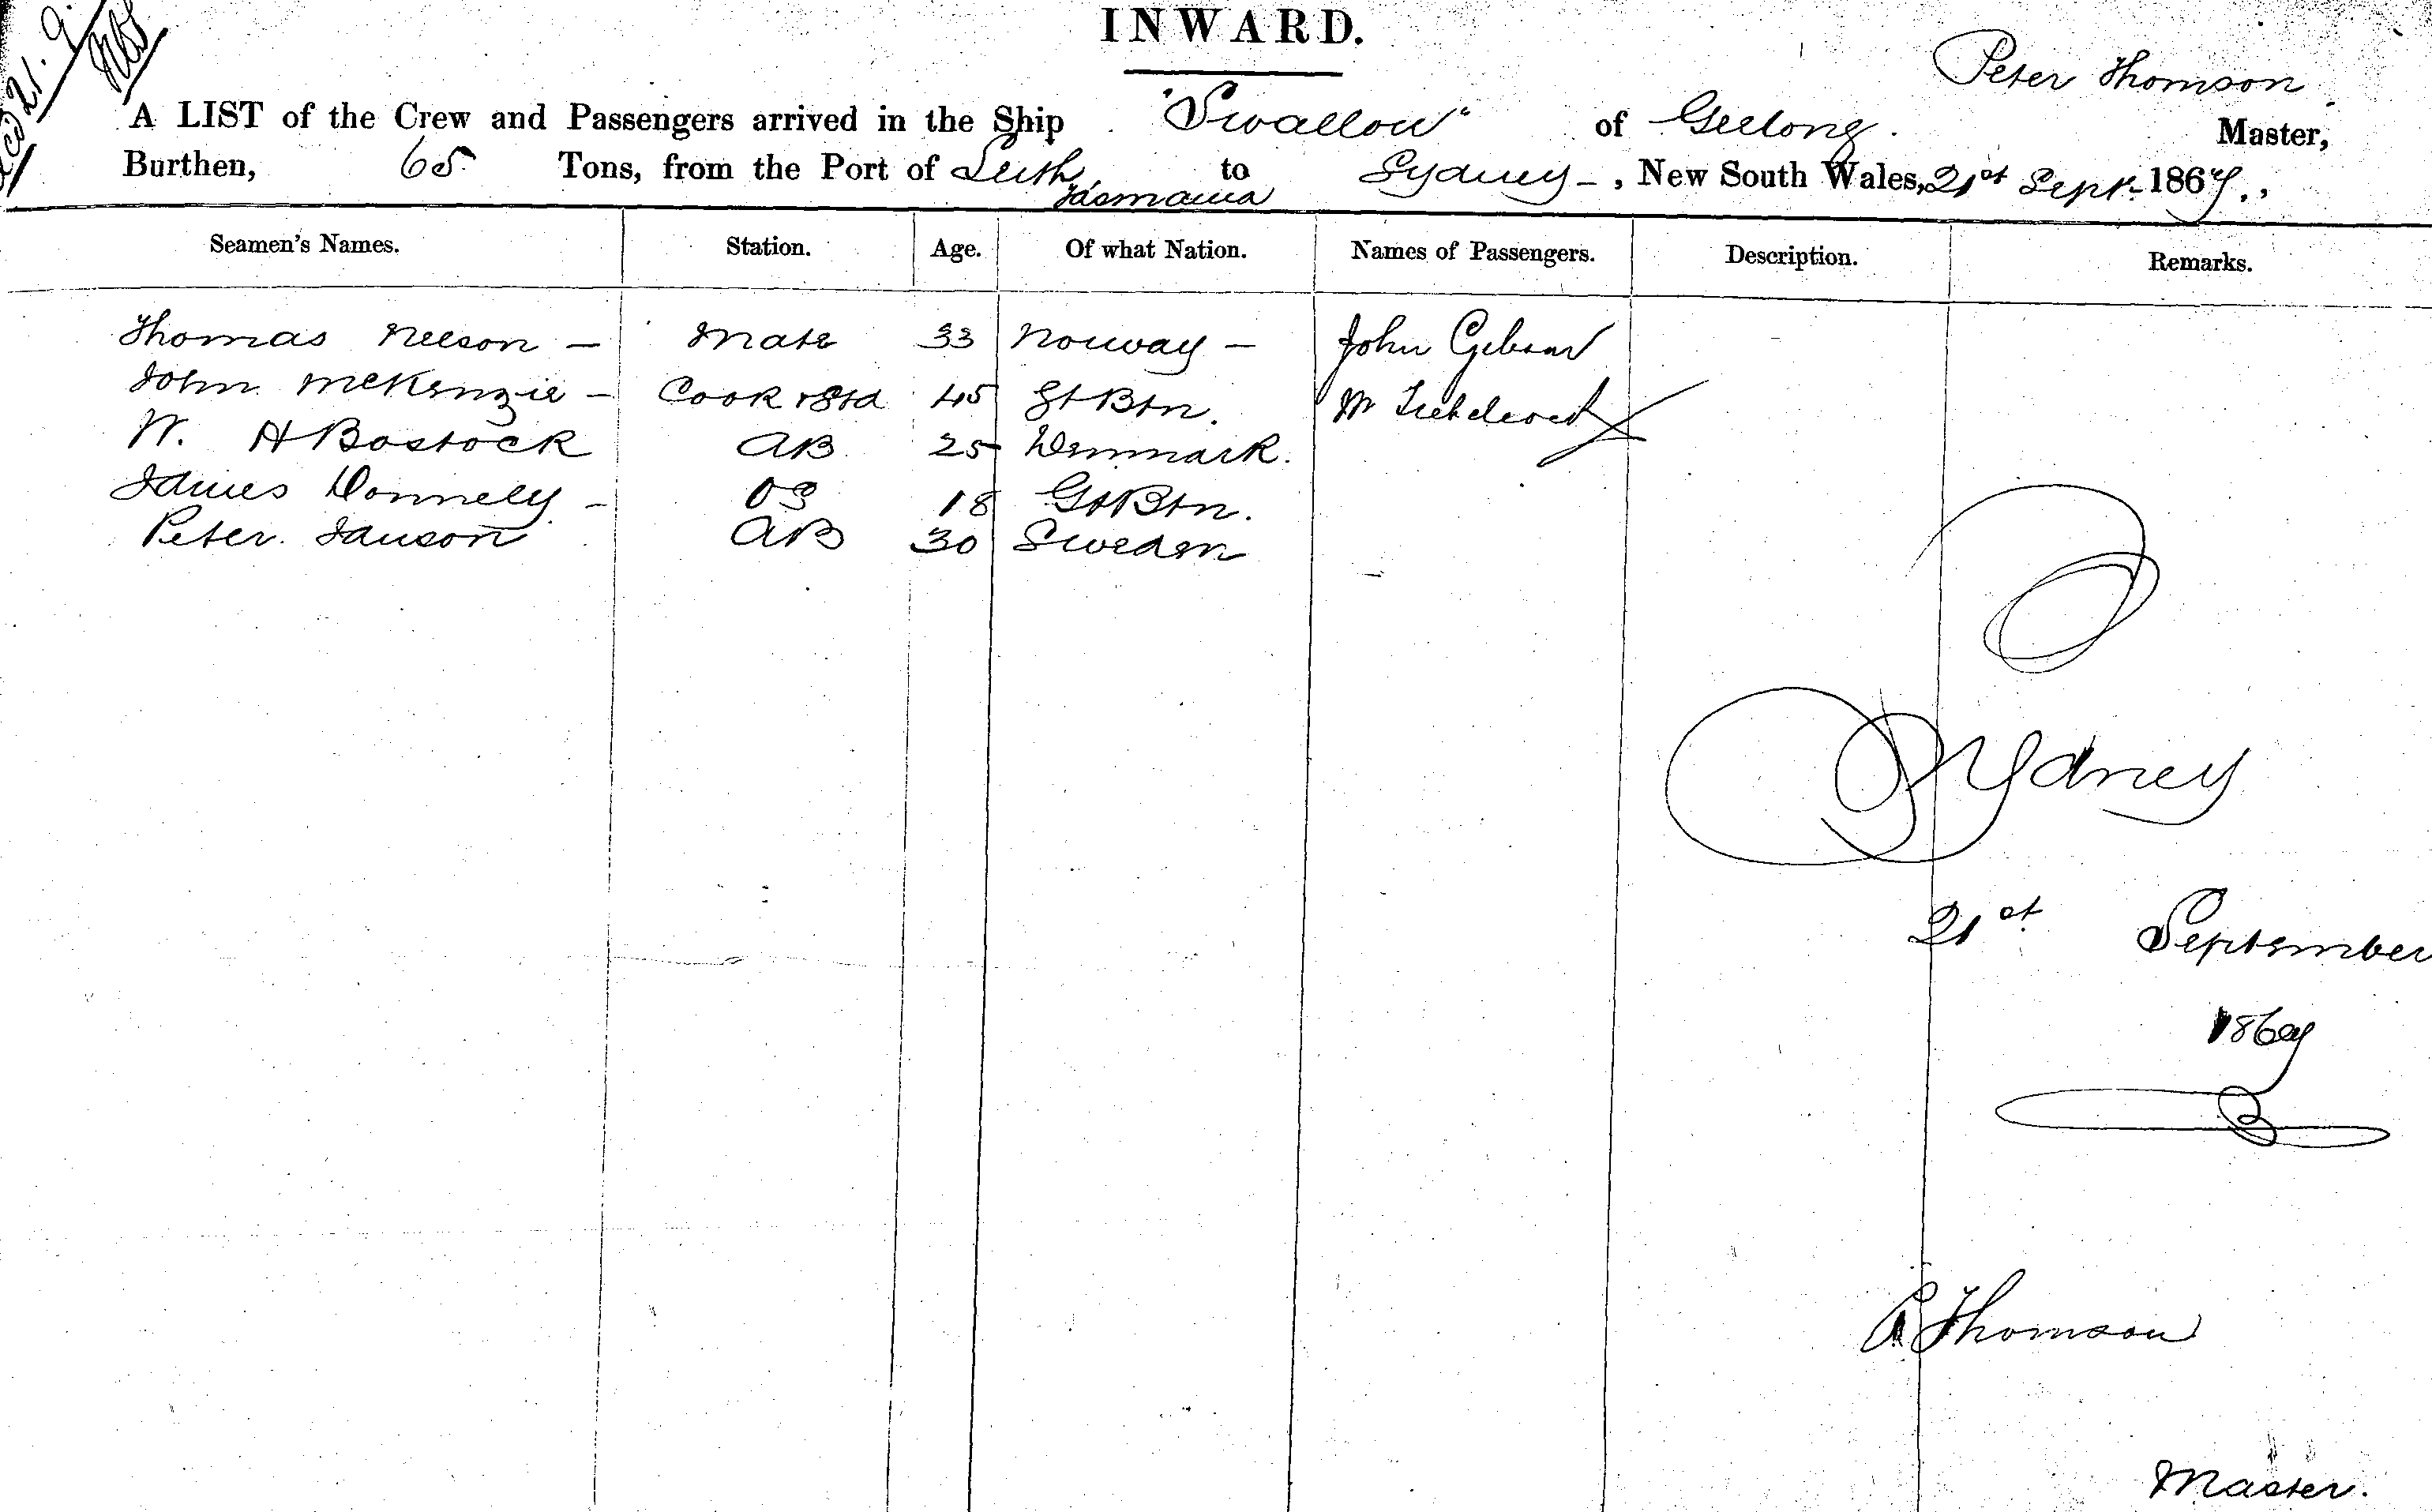 INWARD.
Peter Thomson
A LIST of the Crew and Passengers arrived in the Ship "Swallow" of Geelong. Master,
Burthen, 65 Tons, from the Port of Leith, Tasmania to Sydney - , New South Wales, 21st Sept. 1869.,
Seamen's Names. Station. Age. Of what Nation. Names of Passengers. Description. Remarks.
Thomas Nelson - Mate 33 Norway - John Gibson
John McKenzie - Cook & Std 45 Gt Btn. W
W. H Bostock AB 25 Denmark.
James Donnely - OS 18 Gt Btn.
Peter. Janson AB 30 Sweden
Sydney
21st September
1869
P Thomson
Master.